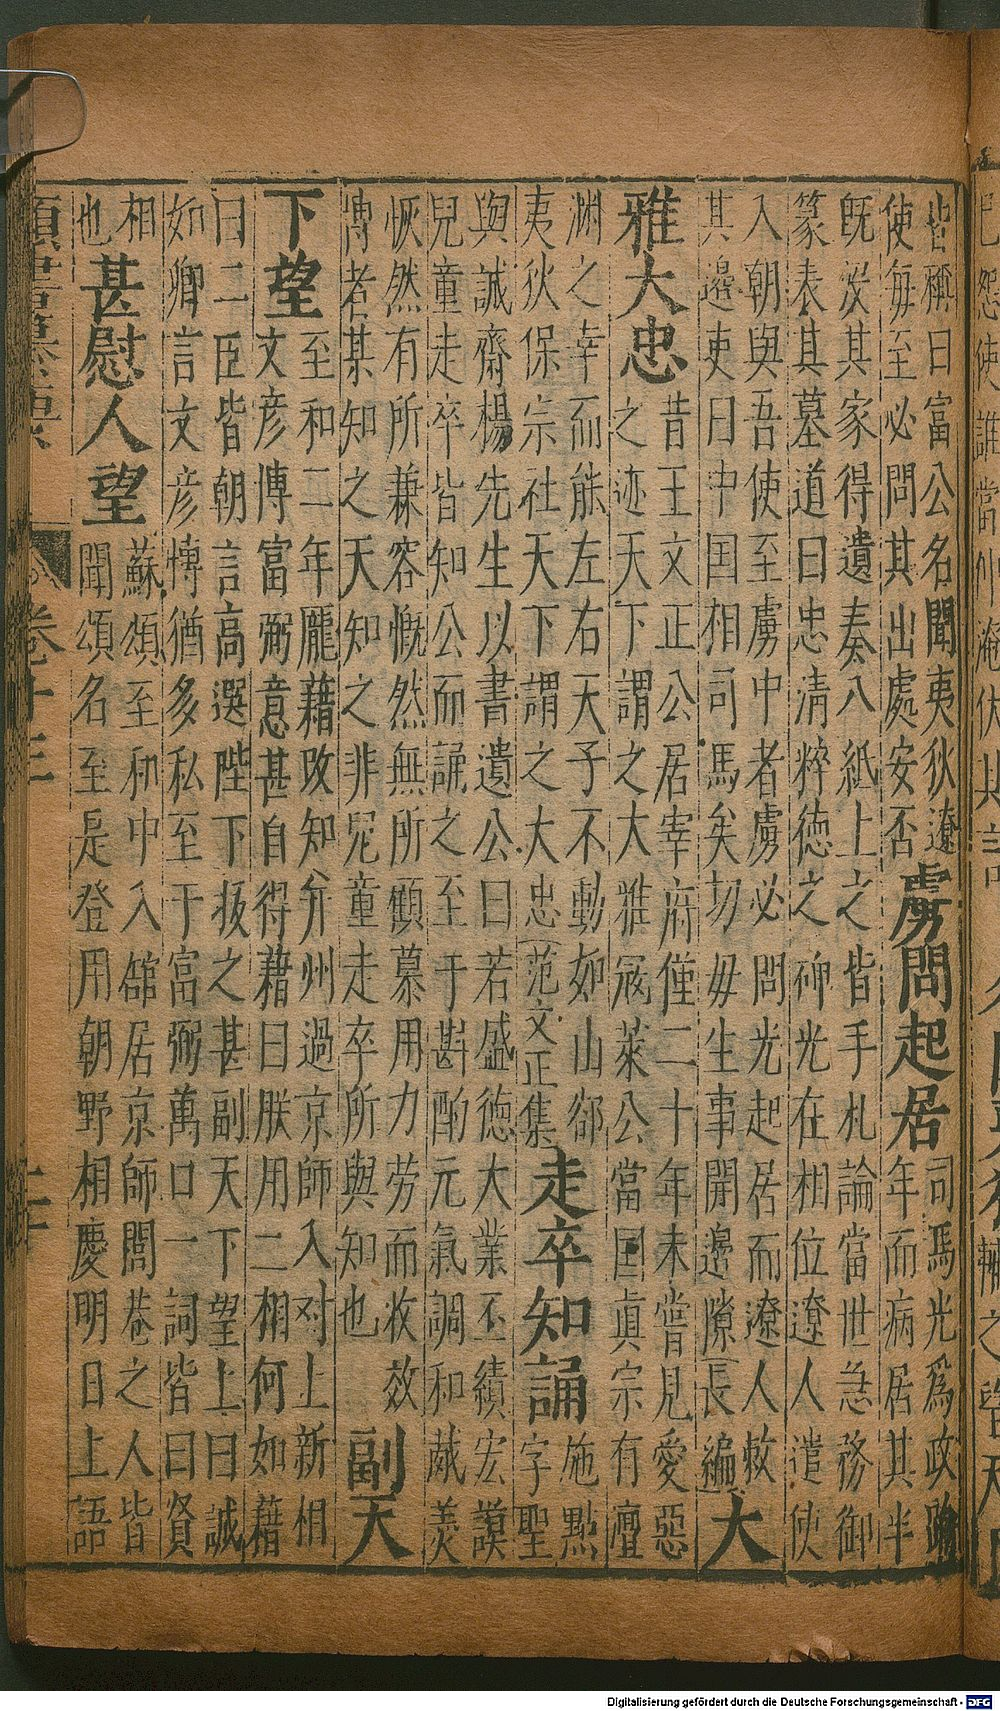 皆稱曰富公名聞夷狄遼
使每至必問其出處安否
虜問起居
司馬光爲政踰
年而病居其半
既没其家得遺奏八紙上之皆手札論當世急務御
篆表其墓道曰忠清粹徳之碑光在相位遼人遣使
入朝與吾使至虜中者虜必問光起居而遼人敕
其邉吏曰中国相司馬矣切毋生事開邉隙長編
大
雅大忠
昔王文正公居宰府僅二十年未嘗見愛惡
之迹天下謂之大雅宼萊公當国眞宗有澶
渊之幸而能左右天子不動如山郤
夷狄保宗社天下謂之大忠范文正集
走卒知誦
施點
字聖
與誠齋楊先生以書遺公曰若盛徳大業丕績宏謨
兒童走卒皆知公而誦之至于斟酌元氣調和葳羙
恢然有所兼容慨然無所顧慕用力劳而收效
博者某知之天知之非兒童走卒所與知也
副天
下望
至和二年龐藉攺知并州過京師入对上新相
文彦博富弼意甚自得藉曰朕用二相何如藉
曰二臣皆朝言高選陛下抜之甚副天下望上曰誠
如卿言文彦博猶多私至于富弼萬口一詞皆曰賢
相
也
甚慰人望
蘇頌至和中入舘居京師閭巷之人皆
聞頌名至是登用朝野相慶明日上語
卷十三
二十
Digitalisierung gefördert durch die Deutsche Forschungsgemeinschaft - DFG